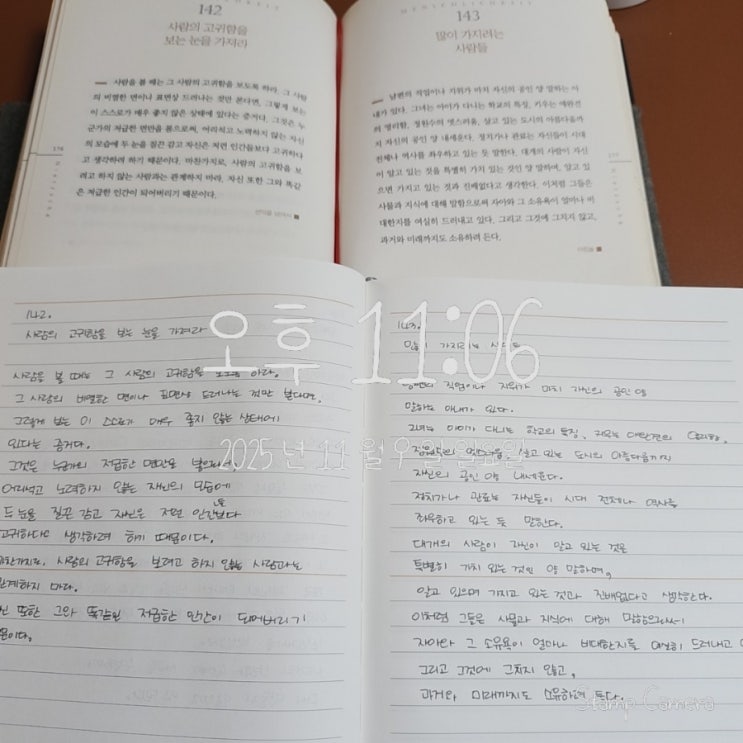 142
사람의 고귀함을
보는 눈을 가져라
사람을 볼 때는 그 사람의 고귀함을 보도록 하라. 그 사람
의 비열한 면이나 표면상 드러나는 것만 본다면, 그렇게 보는
이 스스로가 매우 좋지 않은 상태에 있다는 증거다. 그것은 누
군가의 저급한 면만을 봄으로써, 어리석고 노력하지 않는 자신
의 모습에 두 눈을 질끈 감고 자신은 저런 인간들보다 고귀하다
고 생각하려 하기 때문이다. 마찬가지로, 사람의 고귀함을 보
려고 하지 않는 사람과는 관계하지 마라. 자신 또한 그와 똑같
은 저급한 인간이 되어버리기 때문이다.
선악을 넘어서
176
143
많이 가지려는
사람들
남편의 직업이나 지위가 마치 자신의 공인 양 말하는 아
내가 있다. 그녀는 아이가 다니는 학교의 특징, 키우는 애완견
의 영리함, 정원수의 멋스러움, 살고 있는 도시의 아름다움까
지 자신의 공인 양 내세운다. 정치가나 관료는 자신들이 시대
전체나 역사를 좌우하고 있는 듯 말한다. 대개의 사람이 자신
이 알고 있는 것을 특별히 가치 있는 것인 양 말하며, 알고 있
으면 가지고 있는 것과 진배없다고 생각한다. 이처럼 그들은
사물과 지식에 대해 말함으로써 자아와 그 소유욕이 얼마나 비
대한지를 여실히 드러내고 있다. 그리고 그것에 그치지 않고,
과거와 미래까지도 소유하려 든다.
아침놀
177
142.
사람의 고귀함을 보는 눈을 가져라
사람을 볼 때는 그 사람의 고귀함을 보도록 하라.
그 사람의 비열한 면이나 표면상 드러나는 것만 본다면,
그렇게 보는 이 스스로가 매우 좋지 않은 상태에
있다는 증거다.
그것은 누군가의 저급한 면만을 봄으로써,
어리석고 노력하지 않는 자신의 모습에
두 눈을 질끈 감고 자신은 저런 인간들보다
고귀하다고 생각하려 하기 때문이다.
사람의 고귀함을 보려고 하지 않는 사람과는
관계하지 마라.
또한 그와 똑같은 저급한 인간이 되어버리기
143.
많이 가지려는 사람들
남편의 직업이나 지위가 마치 자신의 공인 양
말하는 아내가 있다.
그녀는 아이가 다니는 학교의 특징, 키우는 애완견의 영리함,
정원수의 멋스러움, 살고 있는 도시의 아름다움까지
자신의 공인 양 내세운다.
정치가나 관료는 자신들이 시대 전체나 역사를
좌우하고 있는 듯 말한다.
대개의 사람이 자신이 알고 있는 것을
특별히 가치 있는 것인 양 말하며,
알고 있으며 가지고 있는 것과 진배없다고 생각한다.
이처럼 그들은 사물과 지식에 대해 말함으로써
자아와 그 소유욕이 얼마나 비대한지를 여실히 드러내고
그리고 그것에 그치지 않고,
과거와 미래까지도 소유하려 든다.
오후 11:06
2025년 11월 9일 일요일
Stamp Camera